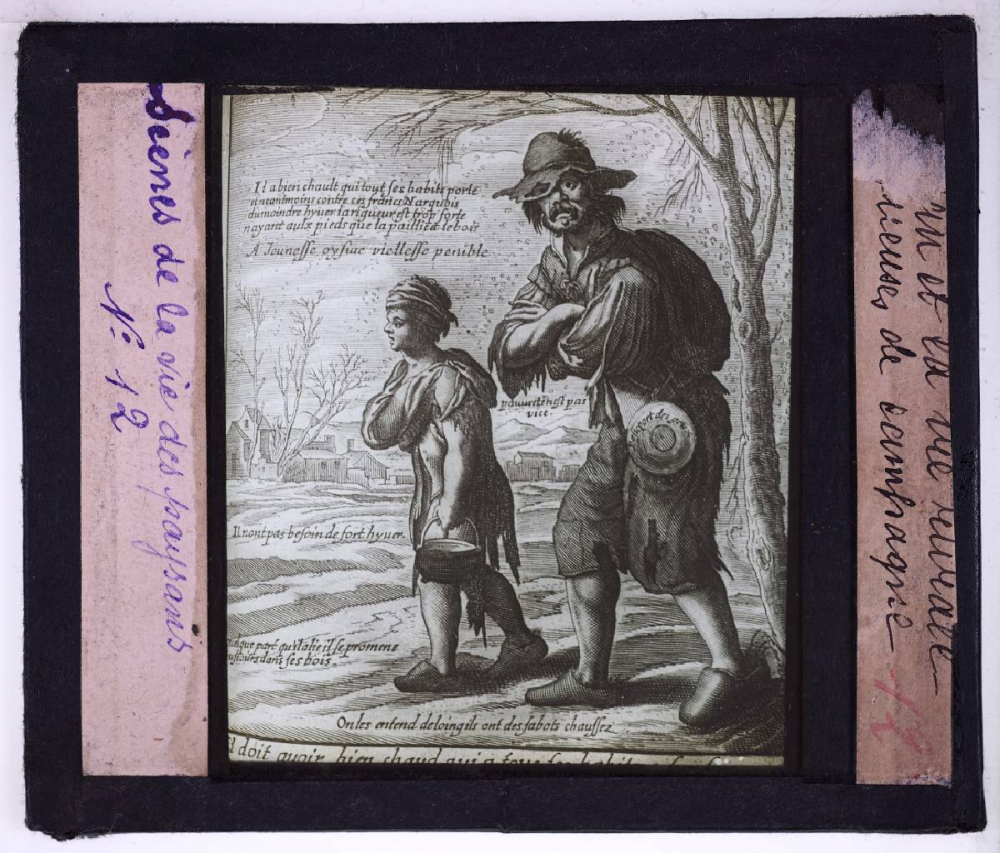 Scènes de la vie des paysans
N° 12
Il a bien chault qui tout ses habits porte
et neantmoins contre ces francs Narquois
du moindre hyver la rigueur est trop forte
n'ayant aulx pieds que la paille et le bois
A Jeunesse oysiue viellesse penible
pauureté n'est pas
vice.
Il n'ont pas besoin de fort hyuer.
que part qu'il alle il se promene
dans ses bois.
On les entend de loing ils ont des sabots chaussez
Il doit auoir bien chaud qui a tous ses habits
et la vie rurale
de campagne
12